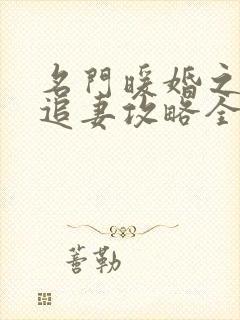 名門暖婚之
追妻攻略全
蓍勒